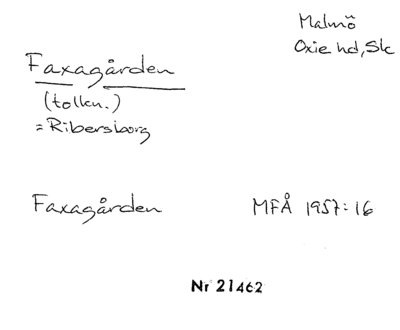 Malmö
Oxie hd, Sk
Faxagården
(tolkn.)
= Ribersborg
Faxagården MFÅ 1957:16
Nr 21462